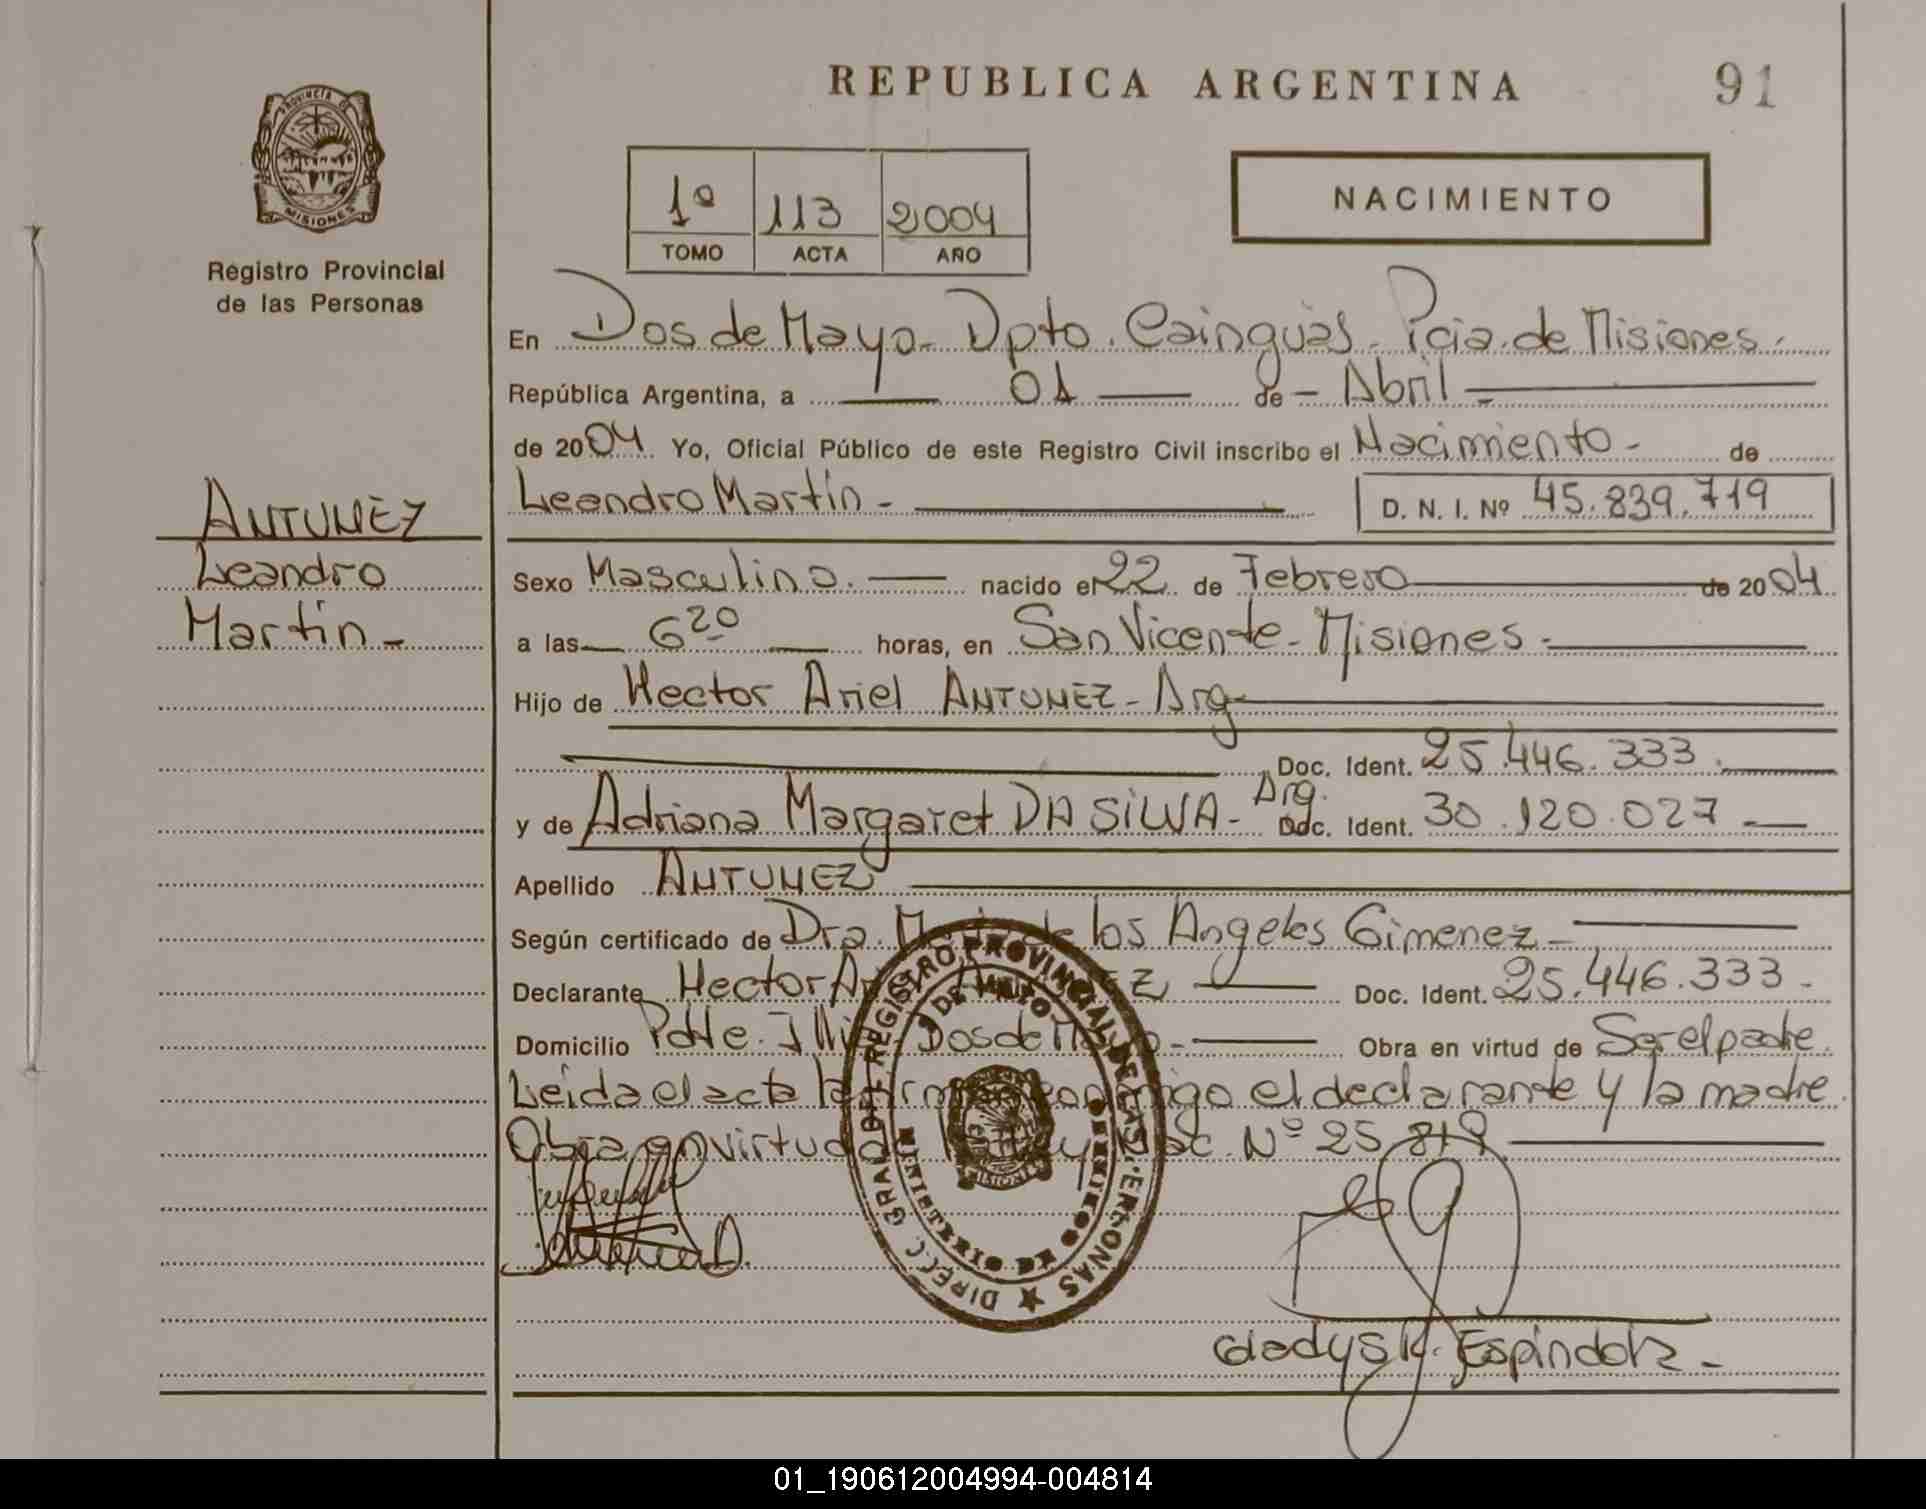 REPUBLICA ARGENTINA
91
PROVINCIA D MISIONES
Registro Provincial
de las Personas
1º 113 2004
TOMO ACTA AÑO
NACIMIENTO
En Dos de Mayo - Dpto. Cainguás - Pcia. de Misiones.
República Argentina, a 01 de - Abril -
de 2004 Yo, Oficial Público de este Registro Civil inscribo el Nacimiento - de
Leandro Martín - D. N. I. Nº 45.839.719
ANTUNEZ
Leandro
Martín -
Sexo Masculino. nacido el 22 de Febrero de 2004
a las 6 20 horas, en San Vicente - Misiones -
Hijo de Hector Ariel ANTUNEZ - Arg
Doc. Ident. 25.446.333.
y de Adriana Margaret DA SILVA - Arg. Doc. Ident. 30.120.027 -
Apellido ANTUNEZ
Según certificado de Dra. de los Angeles Gimenez -
Declarante Hector Doc. Ident. 25.446.333.
Domicilio Dos de Mayo - Obra en virtud de Ser el padre.
Leída el acta la firman conmigo el declarante y la madre.
Obra en virtud de Nº 25.819
DIRECC. GRAL. DEL REGISTRO PROVINCIAL DE LAS PERSONAS
2 DE MAYO
Gladys K. Espíndola -
01_190612004994-004814